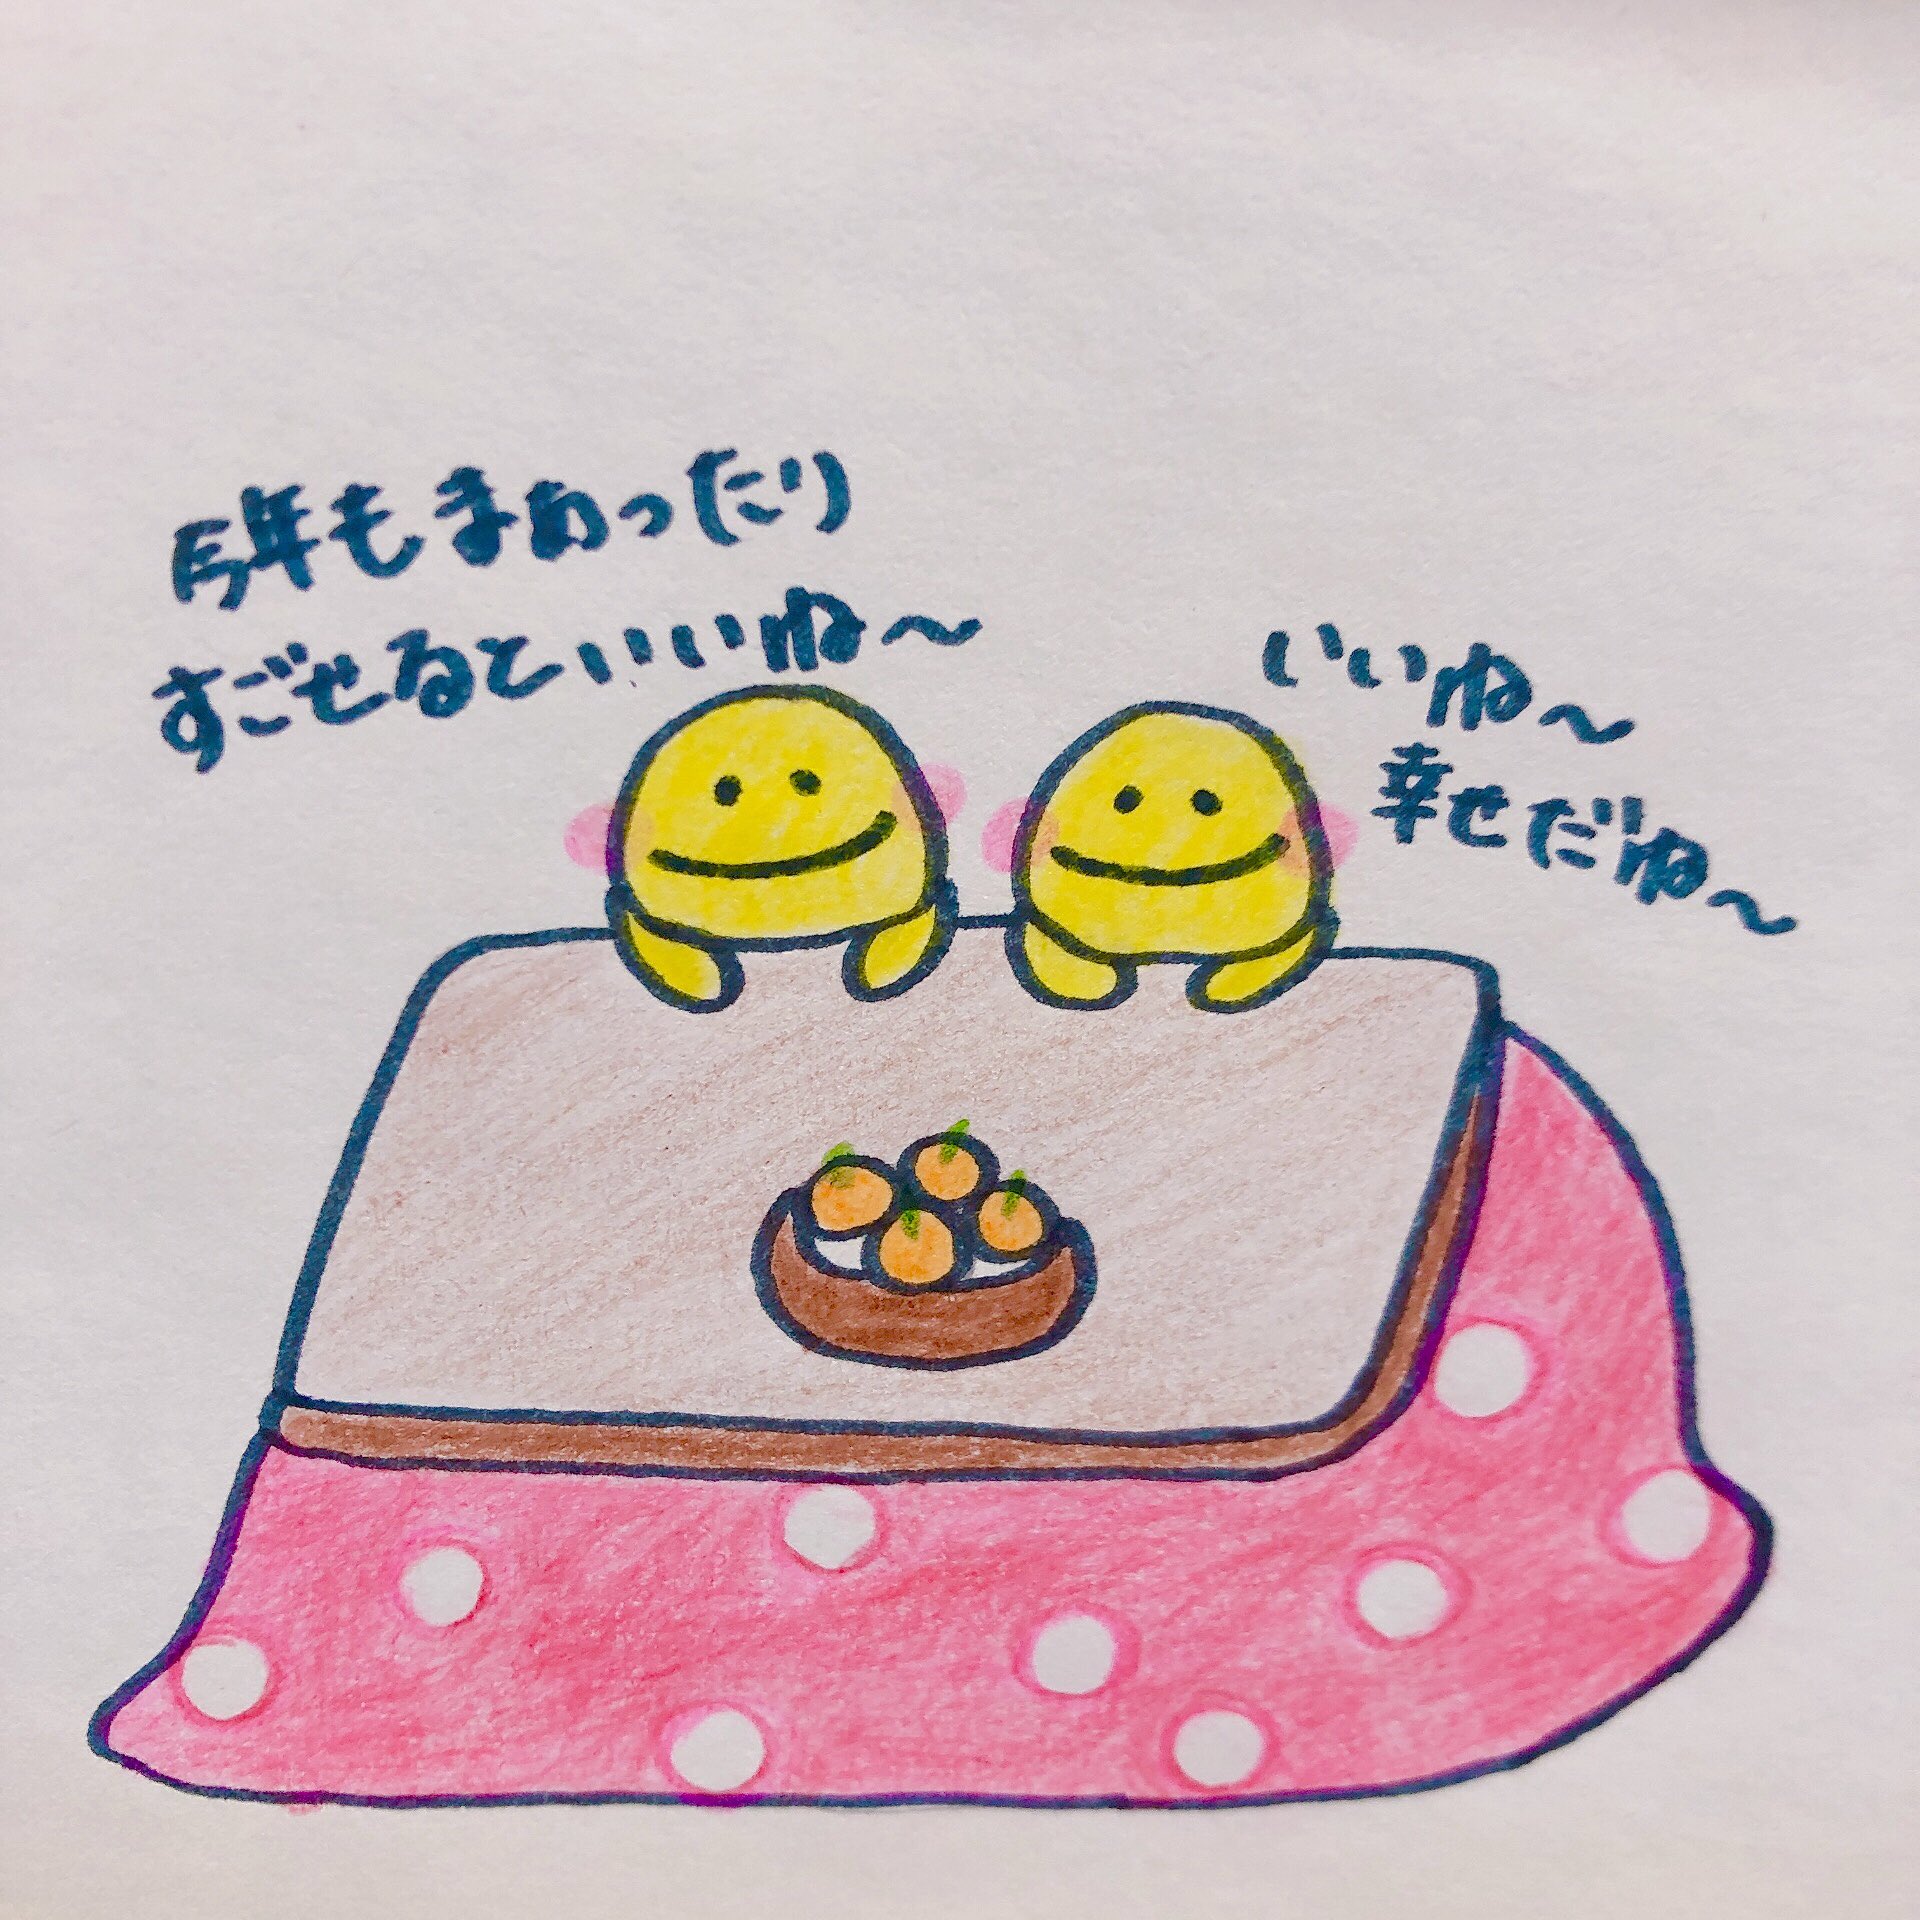 今年もまぁったり
すごせるといいね〜
いいね〜
幸せだね〜